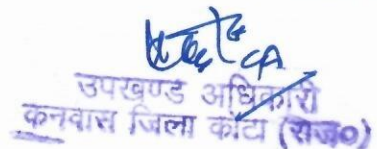 उपखण्ड अधिकारी
कनवास जिला कोटा (राज०)